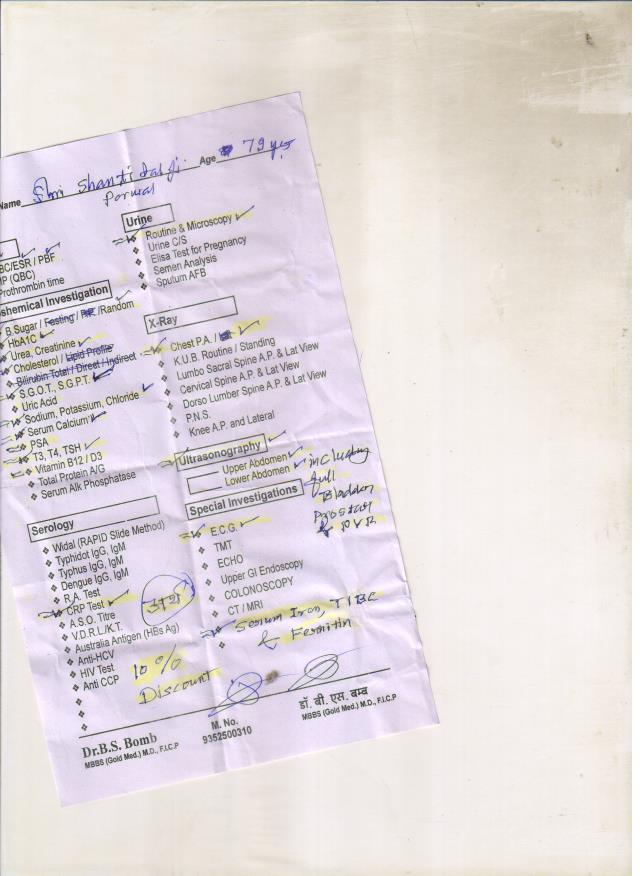 Name Shri Shantidasji Age 79 yrs.
Porwal
BC/ESR / PBF
IP (QBC)
Prothrombin time
ochemical Investigation
B Sugar / Fasting / PP /Random
HbA1C
Urea, Creatinine
Cholesterol / Lipid Profile
Bilirubin Total / Direct / Indirect
S.G.O.T., S.G.P.T.
Uric Acid
Sodium, Potassium, Chloride
Serum Calcium
PSA
T3, T4, TSH
Vitamin B12 / D3
Total Protein A/G
Serum Alk Phosphatase
Serology
Widal (RAPID Slide Method)
Typhidot IgG, IgM
Typhus IgG, IgM
Dengue IgG, IgM
R.A. Test
CRP Test
A.S.O. Titre
V.D.R.L/K.T.
Australia Antigen (HBs Ag)
Anti-HCV
HIV Test
Anti CCP
10 %
Discount
Urine
Routine & Microscopy
Urine C/S
Elisa Test for Pregnancy
Semen Analysis
Sputum AFB
X-Ray
Chest P.A. /
K.U.B. Routine / Standing
Lumbo Sacral Spine A.P. & Lat View
Cervical Spine A.P. & Lat View
Dorso Lumber Spine A.P. & Lat View
P.N.S.
Knee A.P. and Lateral
Ultrasonography
Upper Abdomen
Lower Abdomen
including
full
Bladder
Prostate
& PVR
Special Investigations
E.C.G.
TMT
ECHO
Upper GI Endoscopy
COLONOSCOPY
CT / MRI
Serum Iron, TIBC
& Ferritin
Dr.B.S. Bomb
MBBS (Gold Med.) M.D., F.I.C.P
M. No.
9352500310
डॉ. बी. एस. बम्ब
MBBS (Gold Med.) M.D., F.I.C.P